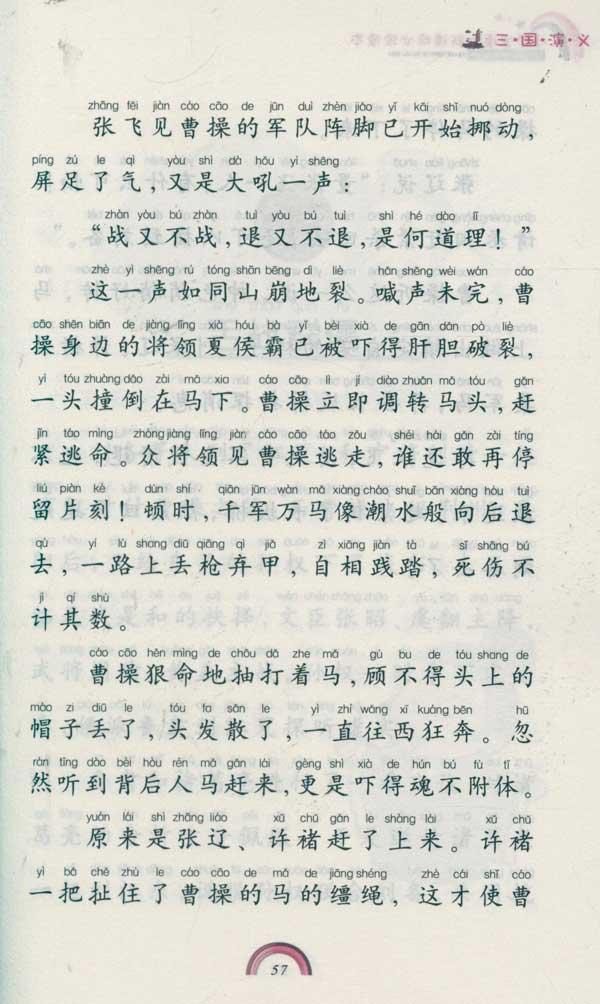 三·国·演·义
zhāng fēi jiàn cáo cāo de jūn duì zhèn jiǎo yǐ kāi shǐ nuó dòng
张飞见曹操的军队阵脚已开始挪动，
píng zú le qì yòu shì dà hǒu yì shēng
屏足了气，又是大吼一声：
zhàn yòu bú zhàn tuì yòu bú tuì shì hé dào lǐ
“战又不战，退又不退，是何道理！”
zhè yì shēng rú tóng shān bēng dì liè hǎn shēng wèi wán cáo
这一声如同山崩地裂。喊声未完，曹
cāo shēn biān de jiàng lǐng xià hóu bà yǐ bèi xià de gān dǎn pò liè
操身边的将领夏侯霸已被吓得肝胆破裂，
yì tóu zhuàng dǎo zài mǎ xia cáo cāo lì jí diào zhuǎn mǎ tóu gǎn
一头撞倒在马下。曹操立即调转马头，赶
jǐn táo mìng zhòng jiàng lǐng jiàn cáo cāo táo zǒu shéi hái gǎn zài tíng
紧逃命。众将领见曹操逃走，谁还敢再停
liú piàn kè dùn shí qiān jūn wàn mǎ xiàng cháo shuǐ bān xiàng hòu tuì
留片刻！顿时，千军万马像潮水般向后退
qù yí lù shang diū qiāng qì jiǎ zì xiāng jiàn tà sǐ shāng bú
去，一路上丢枪弃甲，自相践踏，死伤不
jì qí shù
计其数。
cáo cāo hěn mìng de chōu dǎ zhe mǎ gù bu de tóu shang de
曹操狠命地抽打着马，顾不得头上的
mào zi diū le tóu fa sàn le yì zhí wǎng xī kuáng bēn hū
帽子丢了，头发散了，一直往西狂奔。忽
rán tīng dào bèi hòu rén mǎ gǎn lái gèng shì xià de hún bú fù tǐ
然听到背后人马赶来，更是吓得魂不附体。
yuán lái shì zhāng liáo xǔ chǔ gǎn le shàng lái xǔ chǔ
原来是张辽、许褚赶了上来。许褚
yì bǎ chě zhù le cáo cāo de mǎ de jiāng shéng zhè cái shǐ cáo
一把扯住了曹操的马的缰绳，这才使曹
57